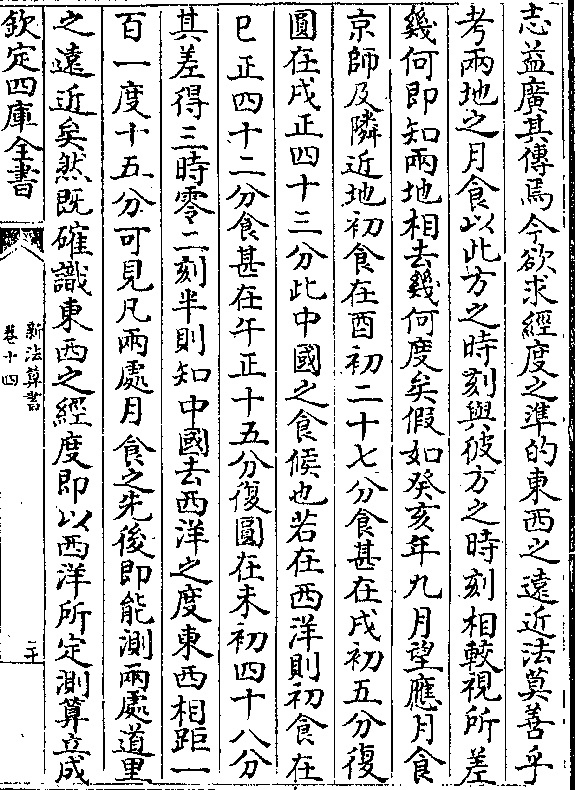 志益廣其傳焉今欲求經度之準的東西之遠近法莫善乎
考兩地之月食以此方之時刻與彼方之時刻相較視所差
幾何即知兩地相去幾何度矣假如癸亥年九月望應月食
京師及隣近地初食在酉初二十七分食甚在戌初五分復
圓在戌正四十三分此中國之食候也若在西洋則初食在
巳正四十二分食甚在午正十五分復圓在未初四十八分
其差得三時零二刻半則知中國去西洋之度東西相距一
百一度十五分可見凡兩處月食之先後即能測兩處道里
之遠近矣然既確識東西之經度即以西洋所定測算立成
欽定四庫全書
新法算書
卷十四
二十